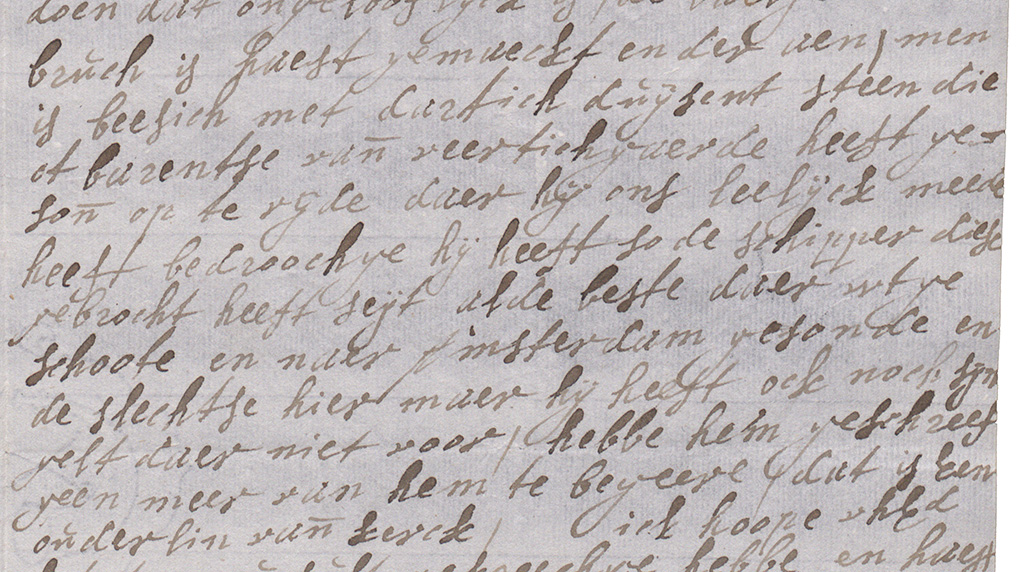 doen dat
bruch is haest gemaeckt en der aen / men
is beesich met dartich duÿsent steen die
ot barentse van veertichgaerde heeft ge=
son op te rÿde daer hÿ ons leelÿck meede
heeft bedroochge hÿ heeft so de schipper diese
gebrocht heeft seÿt alde beste daer wt ge
schoote en naer Amsterdam gesonde en
de slechtse hier maer hÿ heeft ock noch sÿn
gelt daer niet voor / hebbe hem geschreef
geen meer van hem te begeere / dat is een
ouderlin van kerck / ick hoope
hebbe en haest